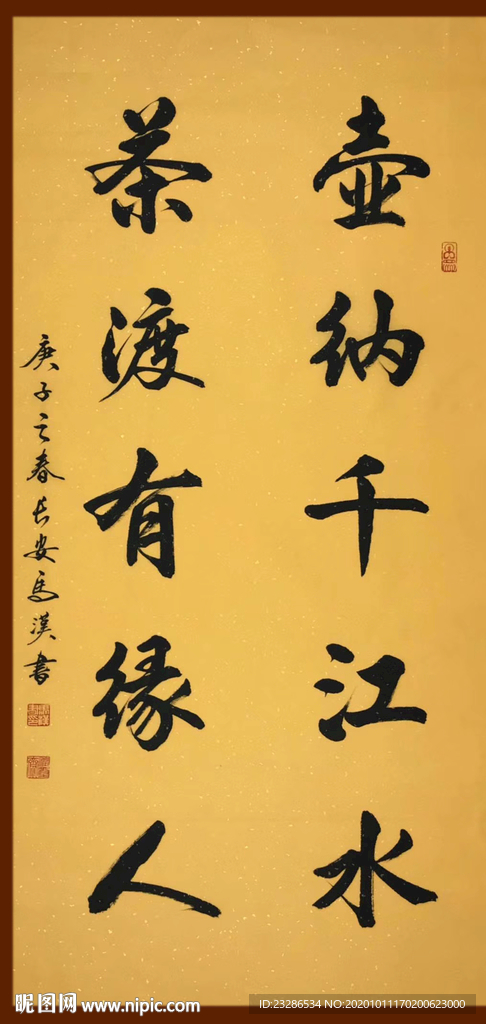 壶纳千江水
茶渡有缘人
庚子之春长安马漢書
昵图网 www.nipic.com
ID:23286534 NO:20201011170200623000